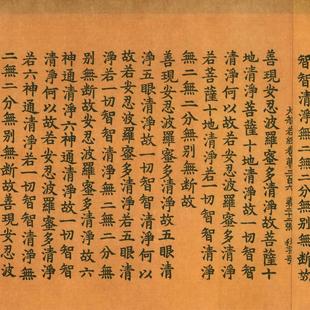 智智清淨無二無二分無別無斷故
善現安忍波羅蜜多清淨故菩薩十
地清淨菩薩十地清淨故一切智智
清淨何以故若安忍波羅蜜多清淨
若菩薩十地清淨若一切智智清淨
無二無二分無別無斷故
善現安忍波羅蜜多清淨故五眼清
淨五眼清淨故一切智智清淨何以
故若安忍波羅蜜多清淨若五眼清
淨若一切智智清淨無二無二分無
別無斷故安忍波羅蜜多清淨故六
神通清淨六神通清淨故一切智智
清淨何以故若安忍波羅蜜多清淨
若六神通清淨若一切智智清淨無
二無二分無別無斷故善現安忍波